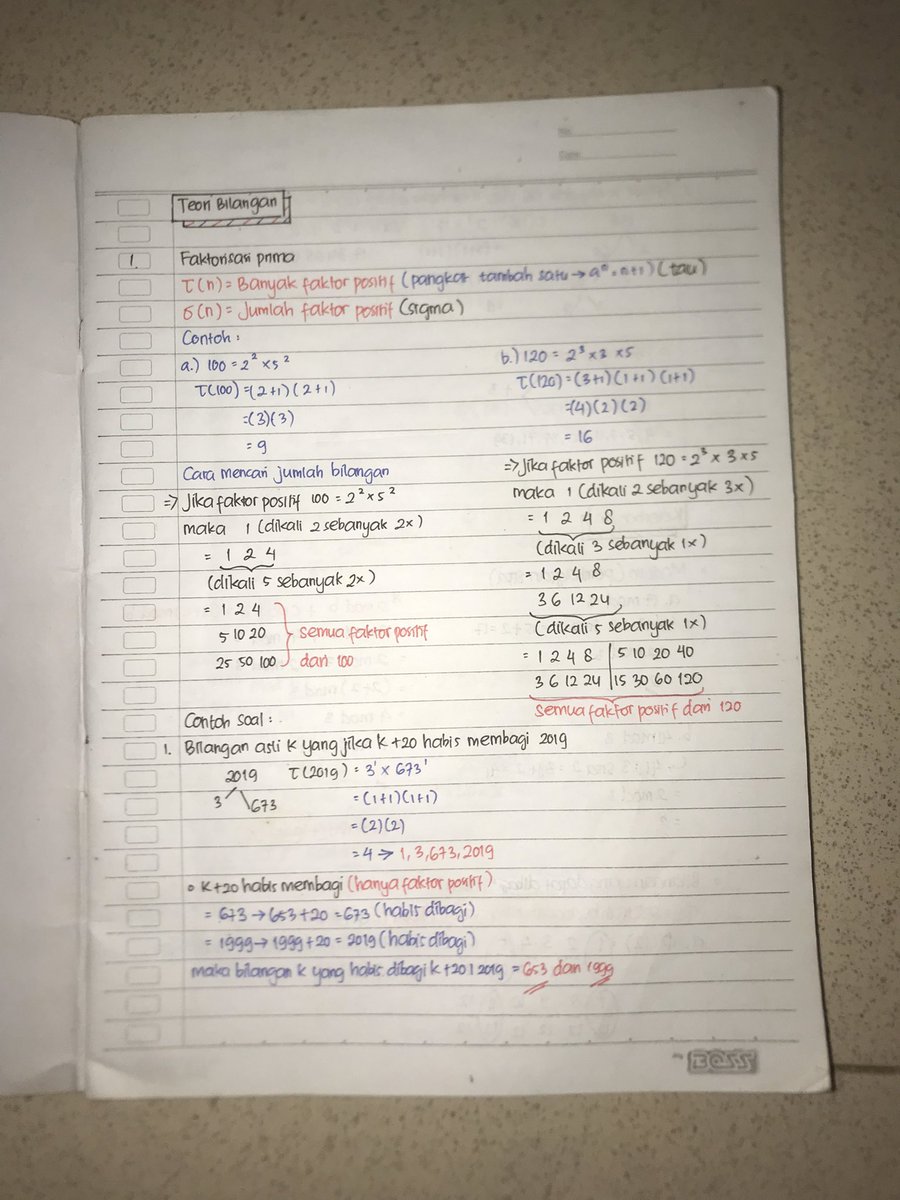 No.
Date
Teori Bilangan
1. Faktorisasi prima
τ(n) = Banyak faktor positif (pangkat tambah satu → aⁿ, n+1) (tau)
σ(n) = Jumlah faktor positif (sigma)
Contoh :
a.) 100 = 2² × 5²
τ(100) = (2+1)(2+1)
= (3)(3)
= 9
Cara mencari jumlah bilangan
=> Jika faktor positif 100 = 2² × 5²
maka 1 (dikali 2 sebanyak 2x)
= 1 2 4
(dikali 5 sebanyak 2x)
= 1 2 4
5 10 20
25 50 100
semua faktor positif
dari 100
b.) 120 = 2³ × 3 × 5
τ(120) = (3+1)(1+1)(1+1)
= (4)(2)(2)
= 16
=> Jika faktor positif 120 = 2³ × 3 × 5
maka 1 (dikali 2 sebanyak 3x)
= 1 2 4 8
(dikali 3 sebanyak 1x)
= 1 2 4 8
3 6 12 24
(dikali 5 sebanyak 1x)
= 1 2 4 8 | 5 10 20 40
3 6 12 24 | 15 30 60 120
semua faktor positif dari 120
Contoh soal :
1. Bilangan asli k yang jika k +20 habis membagi 2019
2019
3 673
τ(2019) = 3¹ × 673¹
= (1+1)(1+1)
= (2)(2)
= 4 → 1, 3, 673, 2019
o k+20 habis membagi (hanya faktor positif)
= 673 → 653 + 20 = 673 (habis dibagi)
= 1999 → 1999 + 20 = 2019 (habis dibagi)
maka bilangan k yang habis dibagi k +20 | 2019 = 653 dan 1999
BOSS